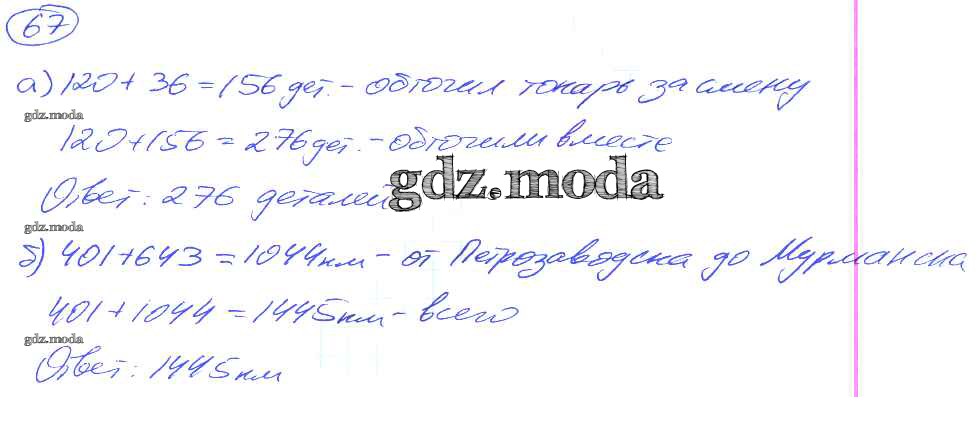 67
а) 120 + 36 = 156 дет. - обточил токарь за смену
gdz.moda
120 + 156 = 276 дет. - обточили вместе
gdz.moda
Ответ: 276 деталей
gdz.moda
б) 401 + 643 = 1044 км - от Петрозаводска до Мурманска
401 + 1044 = 1445 км - всего
gdz.moda
Ответ: 1445 км